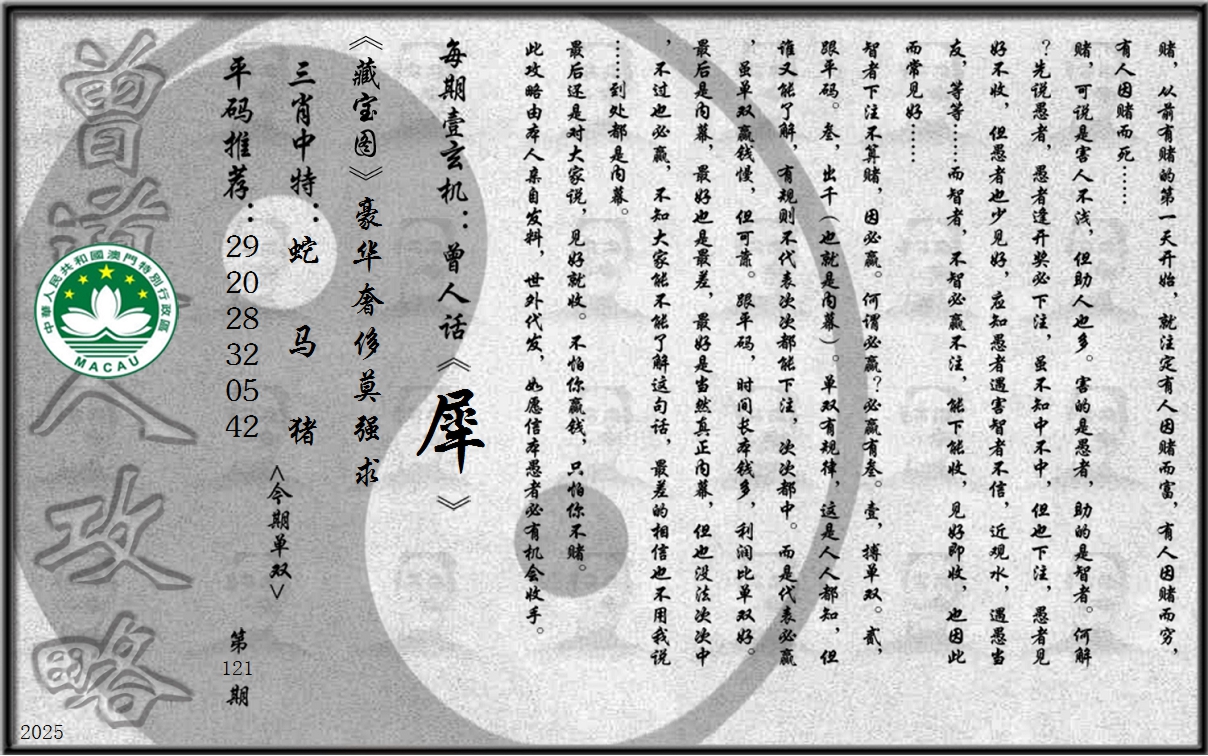 赌，从前有赌的第一天开始，就注定有人因赌而富，有人因赌而穷，
有人因赌而死……
赌，可说是害人不浅，但助人也多。害的是愚者，助的是智者。何解
？先说愚者，愚者逢开奖必下注，虽不知中不中，但也下注，愚者见
好不收，但愚者也少见好，应知愚者遇害智者不信，近观水，遇愚当
友，等等……而智者，不智必赢不注，能下能收，见好即收，也因此
而常见好……
智者下注不算赌，因必赢。何谓必赢？必赢有叁。壹，搏单双。贰，
跟平码。叁，出千（也就是内幕）。单双有规律，这是人人都知，但
谁又能了解，有规则不代表次次都能下注，次次都中。而是代表必赢
，虽单双赢钱慢，但可靠。跟平码，时间长本钱多，利润比单双好。
最后是内幕，最好也是最差，最好是当然真正内幕，但也没法次次中
，不过也必赢，不知大家能不能了解这句话，最差的相信也不用我说
……到处都是内幕。
最后还是对大家说，见好就收。不怕你赢钱，只怕你不赌。
此攻略由本人亲自发料，世外代发，如愿信本愚者必有机会收手。
每期壹玄机：曾人话《犀》
《藏宝图》豪华奢侈莫强求
三肖中特：蛇 马 猪
<今期单双>
平码推荐：29 20 28 32 05 42
第121期
曾道人攻略
中華人民共和國澳門特別行政區
MACAU
2025